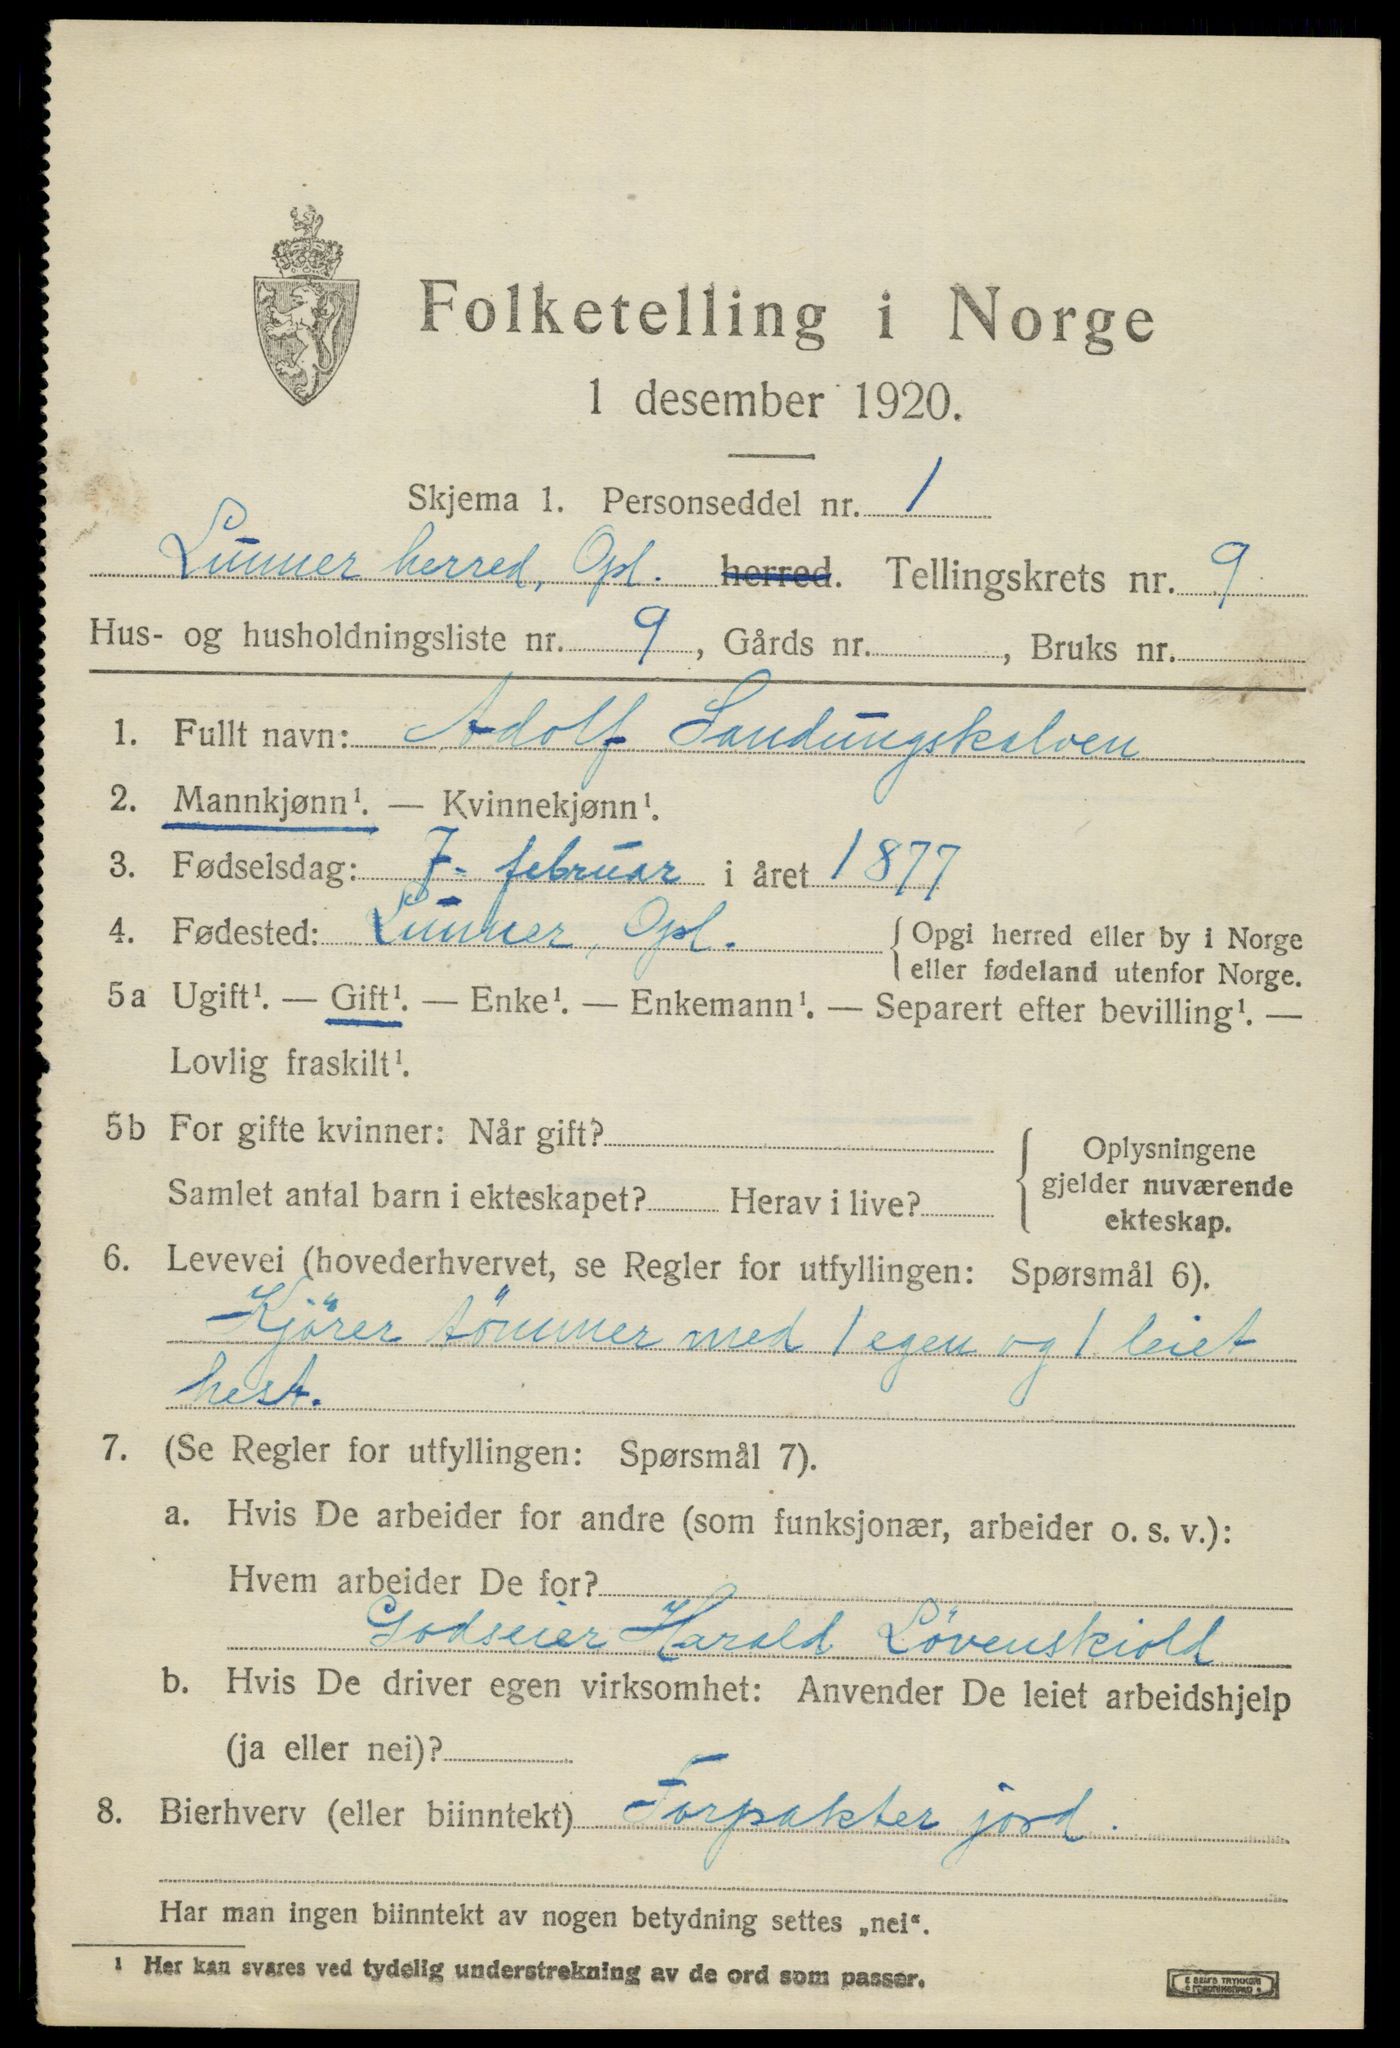 Folketelling i Norge
1 desember 1920.
Skjema 1. Personseddel nr. 1
Lunner herred, Opl. herred. Tellingskrets nr. 9
Hus- og husholdningsliste nr. 9, Gårds nr. , Bruks nr.
1. Fullt navn: Adolf Sandungskalven
2. Mannkjønn¹. — Kvinnekjønn¹.
3. Fødselsdag: 7. februar i året 1877
4. Fødested: Lunner, Opl. { Opgi herred eller by i Norge
eller fødeland utenfor Norge.
5a Ugift¹. — Gift¹. — Enke¹. — Enkemann¹. — Separert efter bevilling¹. —
Lovlig fraskilt¹.
5b For gifte kvinner: Når gift?
Samlet antal barn i ekteskapet? Herav i live?
{ Oplysningene
gjelder nuværende
ekteskap.
6. Levevei (hovederhvervet, se Regler for utfyllingen: Spørsmål 6).
Kjörer tömmer med 1 egen og 1 leiet
hest.
7. (Se Regler for utfyllingen: Spørsmål 7).
a. Hvis De arbeider for andre (som funksjonær, arbeider o. s. v.):
Hvem arbeider De for?
Godseier Harald Lövenskiold
b. Hvis De driver egen virksomhet: Anvender De leiet arbeidshjelp
(ja eller nei)?
8. Bierhverv (eller biinntekt) Forpakter jord.
Har man ingen biinntekt av nogen betydning settes „nei“.
¹ Her kan svares ved tydelig understrekning av de ord som passer.